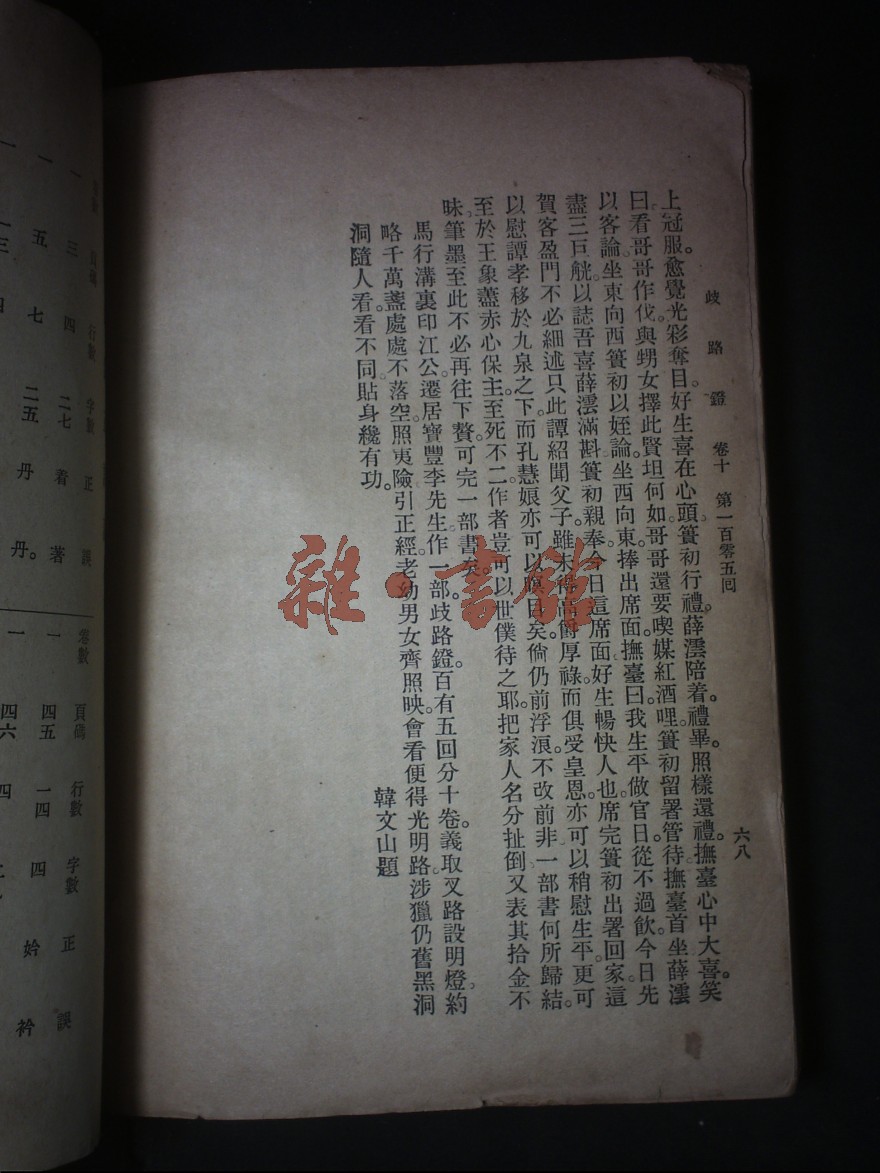 歧路鐙　卷十　第一百零五回　六八
上冠服。愈覺光彩奪目。好生喜在心頭。簣初行禮。薛澐陪着。禮畢。照樣還禮。撫臺心中大喜。笑
曰看哥哥作伐與甥女擇此賢坦何如。哥哥還要喫媒紅酒哩。簣初留署管待。撫臺首坐。薛澐
以客論。坐東向西。簣初以姪論。坐西向東。捧出席面。撫臺曰。我生平做官日。從不過飲。今日先
盡三巨觥。以誌吾喜。薛澐滿斟。簣初親奉。今日這席面。好生暢快人也。席完。簣初出署回家。這
賀客盈門。不必細述。只此譚紹聞父子。雖未得高爵厚祿。而俱受皇恩。亦可以稍慰生平。更可
以慰譚孝移於九泉之下。而孔慧娘亦可以瞑目矣。倘仍前浮浪。不改前非。一部書何所歸結。
至於王象藎赤心保主。至死不二。作者豈可以世僕待之耶。把家人名分扯倒。又表其拾金不
昧。筆墨至此。不必再往下贅。可完一部書矣。
馬行溝裏印江公。遷居寶豐李先生。作一部歧路鐙。百有五回分十卷。義取叉路設明燈。約
略千萬盞。處處不落空。照夷險。引正經。老幼男女齊照映。會看便得光明路。涉獵仍舊黑洞
洞。隨人看看不同。貼身纔有功。
韓文山題
行數 字數 正 誤
三 四 二七 看 著
五 七 二五 丹 丹。
卷數 頁碼 行數 字數 正 誤
一 四五 一四 四 妗 衿
一 四六 四